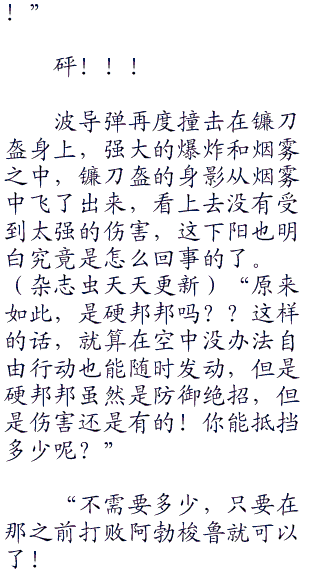 ！”
砰！！！
波导弹再度撞击在镰刀
盔身上，强大的爆炸和烟雾
之中，镰刀盔的身影从烟雾
中飞了出来，看上去没有受
到太强的伤害，这下阳也明
白究竟是怎么回事的了。
（杂志虫天天更新）“原来
如此，是硬邦邦吗？？这样
的话，就算在空中没办法自
由行动也能随时发动，但是
硬邦邦虽然是防御绝招，但
是伤害还是有的！你能抵挡
多少呢？”
“不需要多少，只要在
那之前打败阿勃梭鲁就可以
了！